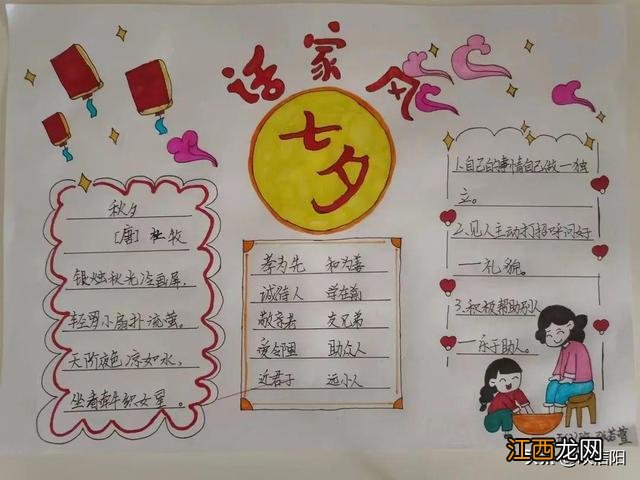 话家风
七夕
秋夕
[唐] 杜牧
银烛秋光冷画屏，
轻罗小扇扑流萤。
天阶夜色凉如水，
坐看牵牛织女星。
孝为先 和为善
诚待人 学在前
敬亲者 友兄弟
爱邻里 助众人
近君子 远小人
1.自己的事情自己做一独
立。
2.见人主动打招呼问好
一礼貌。
3.积极帮助别人
一乐于助人。
江西龙网